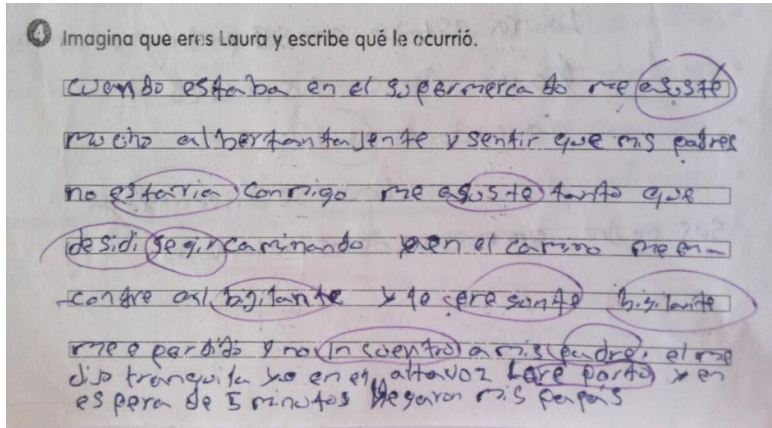 4 Imagina que eres Laura y escribe qué le ocurrió.
cuando estaba en el supermercado me asuste
mucho al ber tanta jente y sentir que mis padres
no estarria conmigo me asuste tanto que
desidi segir caminando en el camino me en-
contre al bigilante y le bigilante
me e perdido y no in cuentro a mis padre. el me
dijo tranquila yo en el altavoz y en
espera de 5 minutos llegaron mis papás